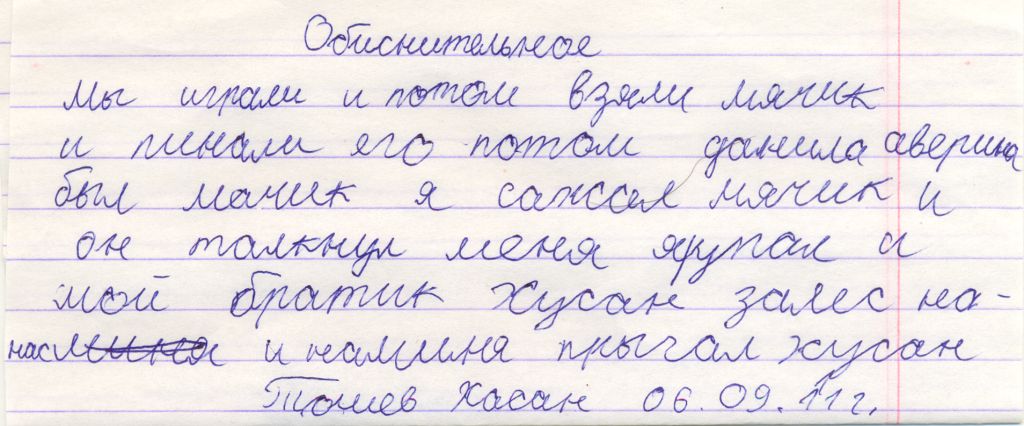 Обиснительное
мы играли и потом взяли мячик
и пинали его потом данила аверина
был мачик я сажал мячик и
он толкнул меня яупал и
мой братик хусан залес на-
нас и намииня прыгал хусан
Тошев Хасан 06.09.11г.